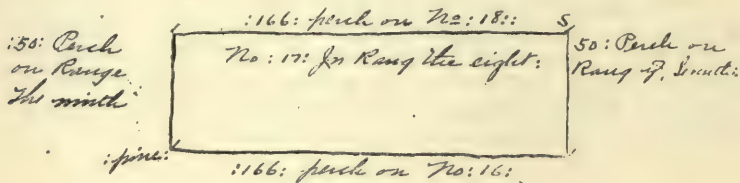 :166: perch on No: 18:: S
:50: Perch
on Range
The ninth
No: 17: In Rang the eight:
50: Perch on
Rang
:pine:
:166: perch on No: 16: